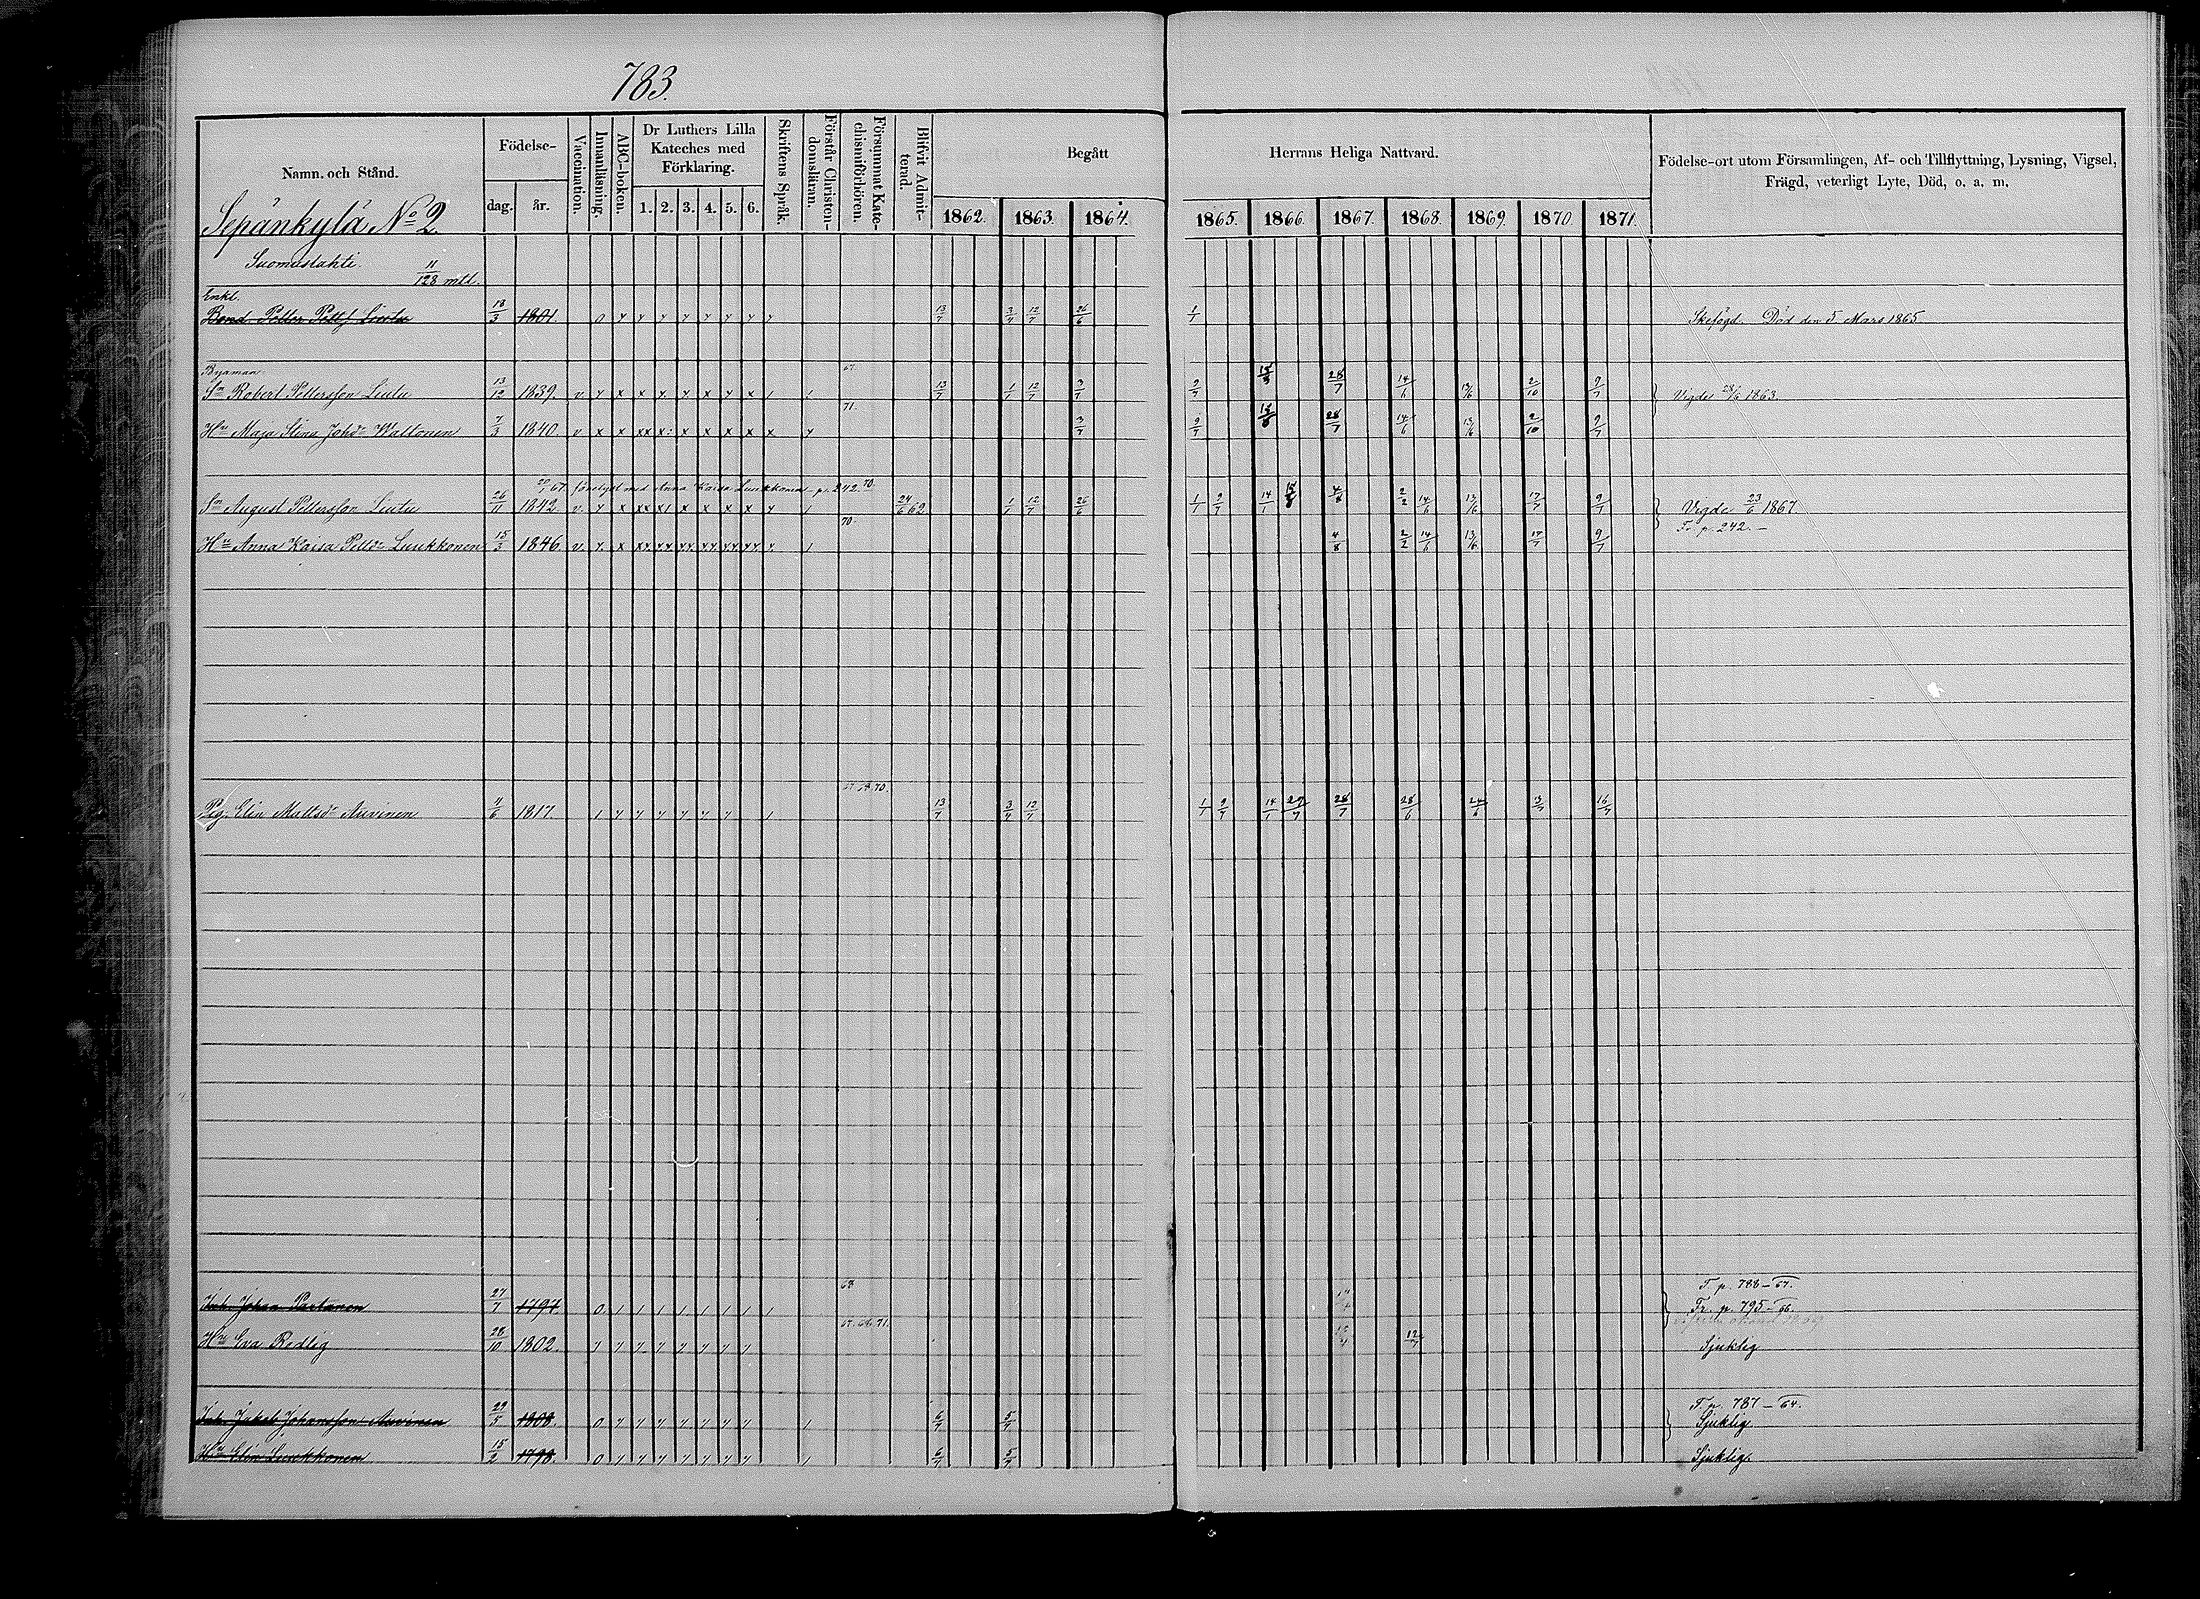 783.
Namn och Stånd.
Födelse-
dag.
år.
Vaccination.
Innanläsning.
ABC-boken.
Dr Luthers Lilla Kateches med Förklaring.
1. 2. 3. 4. 5. 6.
Skriftens Språk.
Förstår Christendomsläran.
Försummat Katechismiförhören.
Blifvit Admitterad.
Begått
Herrans Heliga Nattvard.
1862. 1863. 1864. 1865. 1866. 1867. 1868. 1869. 1870. 1871.
Födelse-ort utom Församlingen, Af- och Tillflyttning, Lysning, Vigsel,
Frägd, veterligt Lyte, Död, o. a. m.
Sepänkylä No 2.
Suomuslahti. 11/128 mtl.
Enkl.
Bond. Petter Petts Liutu 18/3 1801. 0 13/7 3/7 12/7 26/6 1/7 Skefögd. Död den 5 Mars 1865.
Byaman 67.
Sn Robert Pettersson Liutu 13/12 1839. v 13/7 1/1 12/7 3/7 9/7 28/7 14/6 13/6 2/10 9/7 Vigde 28/6 1863.
71.
Hu Maja Stina Johdr Waltonen 7/3 1840. v 3/7 9/7 28/7 14/6 13/6 2/10 9/7
20/1 67. förelyst med Anna Kaisa Luukkonen p. 242. 70.
Sn August Pettersson Liutu 26/11 1842. v 24/6 62 1/1 12/7 26/6 1/1 9/7 14/1 4/8 2/2 14/6 13/6 17/7 9/7 Vigde 23/6 1867
70. Fr. p. 242. —
Hu Anna Kaisa Pettdr Luukkonen 15/3 1846. v 4/8 2/2 14/6 13/6 17/7 9/7
67. 68. 70.
Pig. Elin Mattsdr Auvinen 11/6 1817. 13/7 3/7 12/7 1/1 9/7 14/1 29/7 28/7 28/6 24/6 3/7 16/7
68. T. p. 788 – 67.
Inh. Johan Partanen 27/7 1797. 0 Fr. p. 795 – 66.
67. 68. 71.
Hu Eva Redlig 28/10 1802. 12/7 Sjuklig
T. p. 787 – 64.
Inh. Jakob Johansson Auvinen 29/5 1808. 0 6/7 5/7 Sjuklig
Hu Elin Luukkonen 15/2 1798. 0 6/7 5/7 Sjuklig.